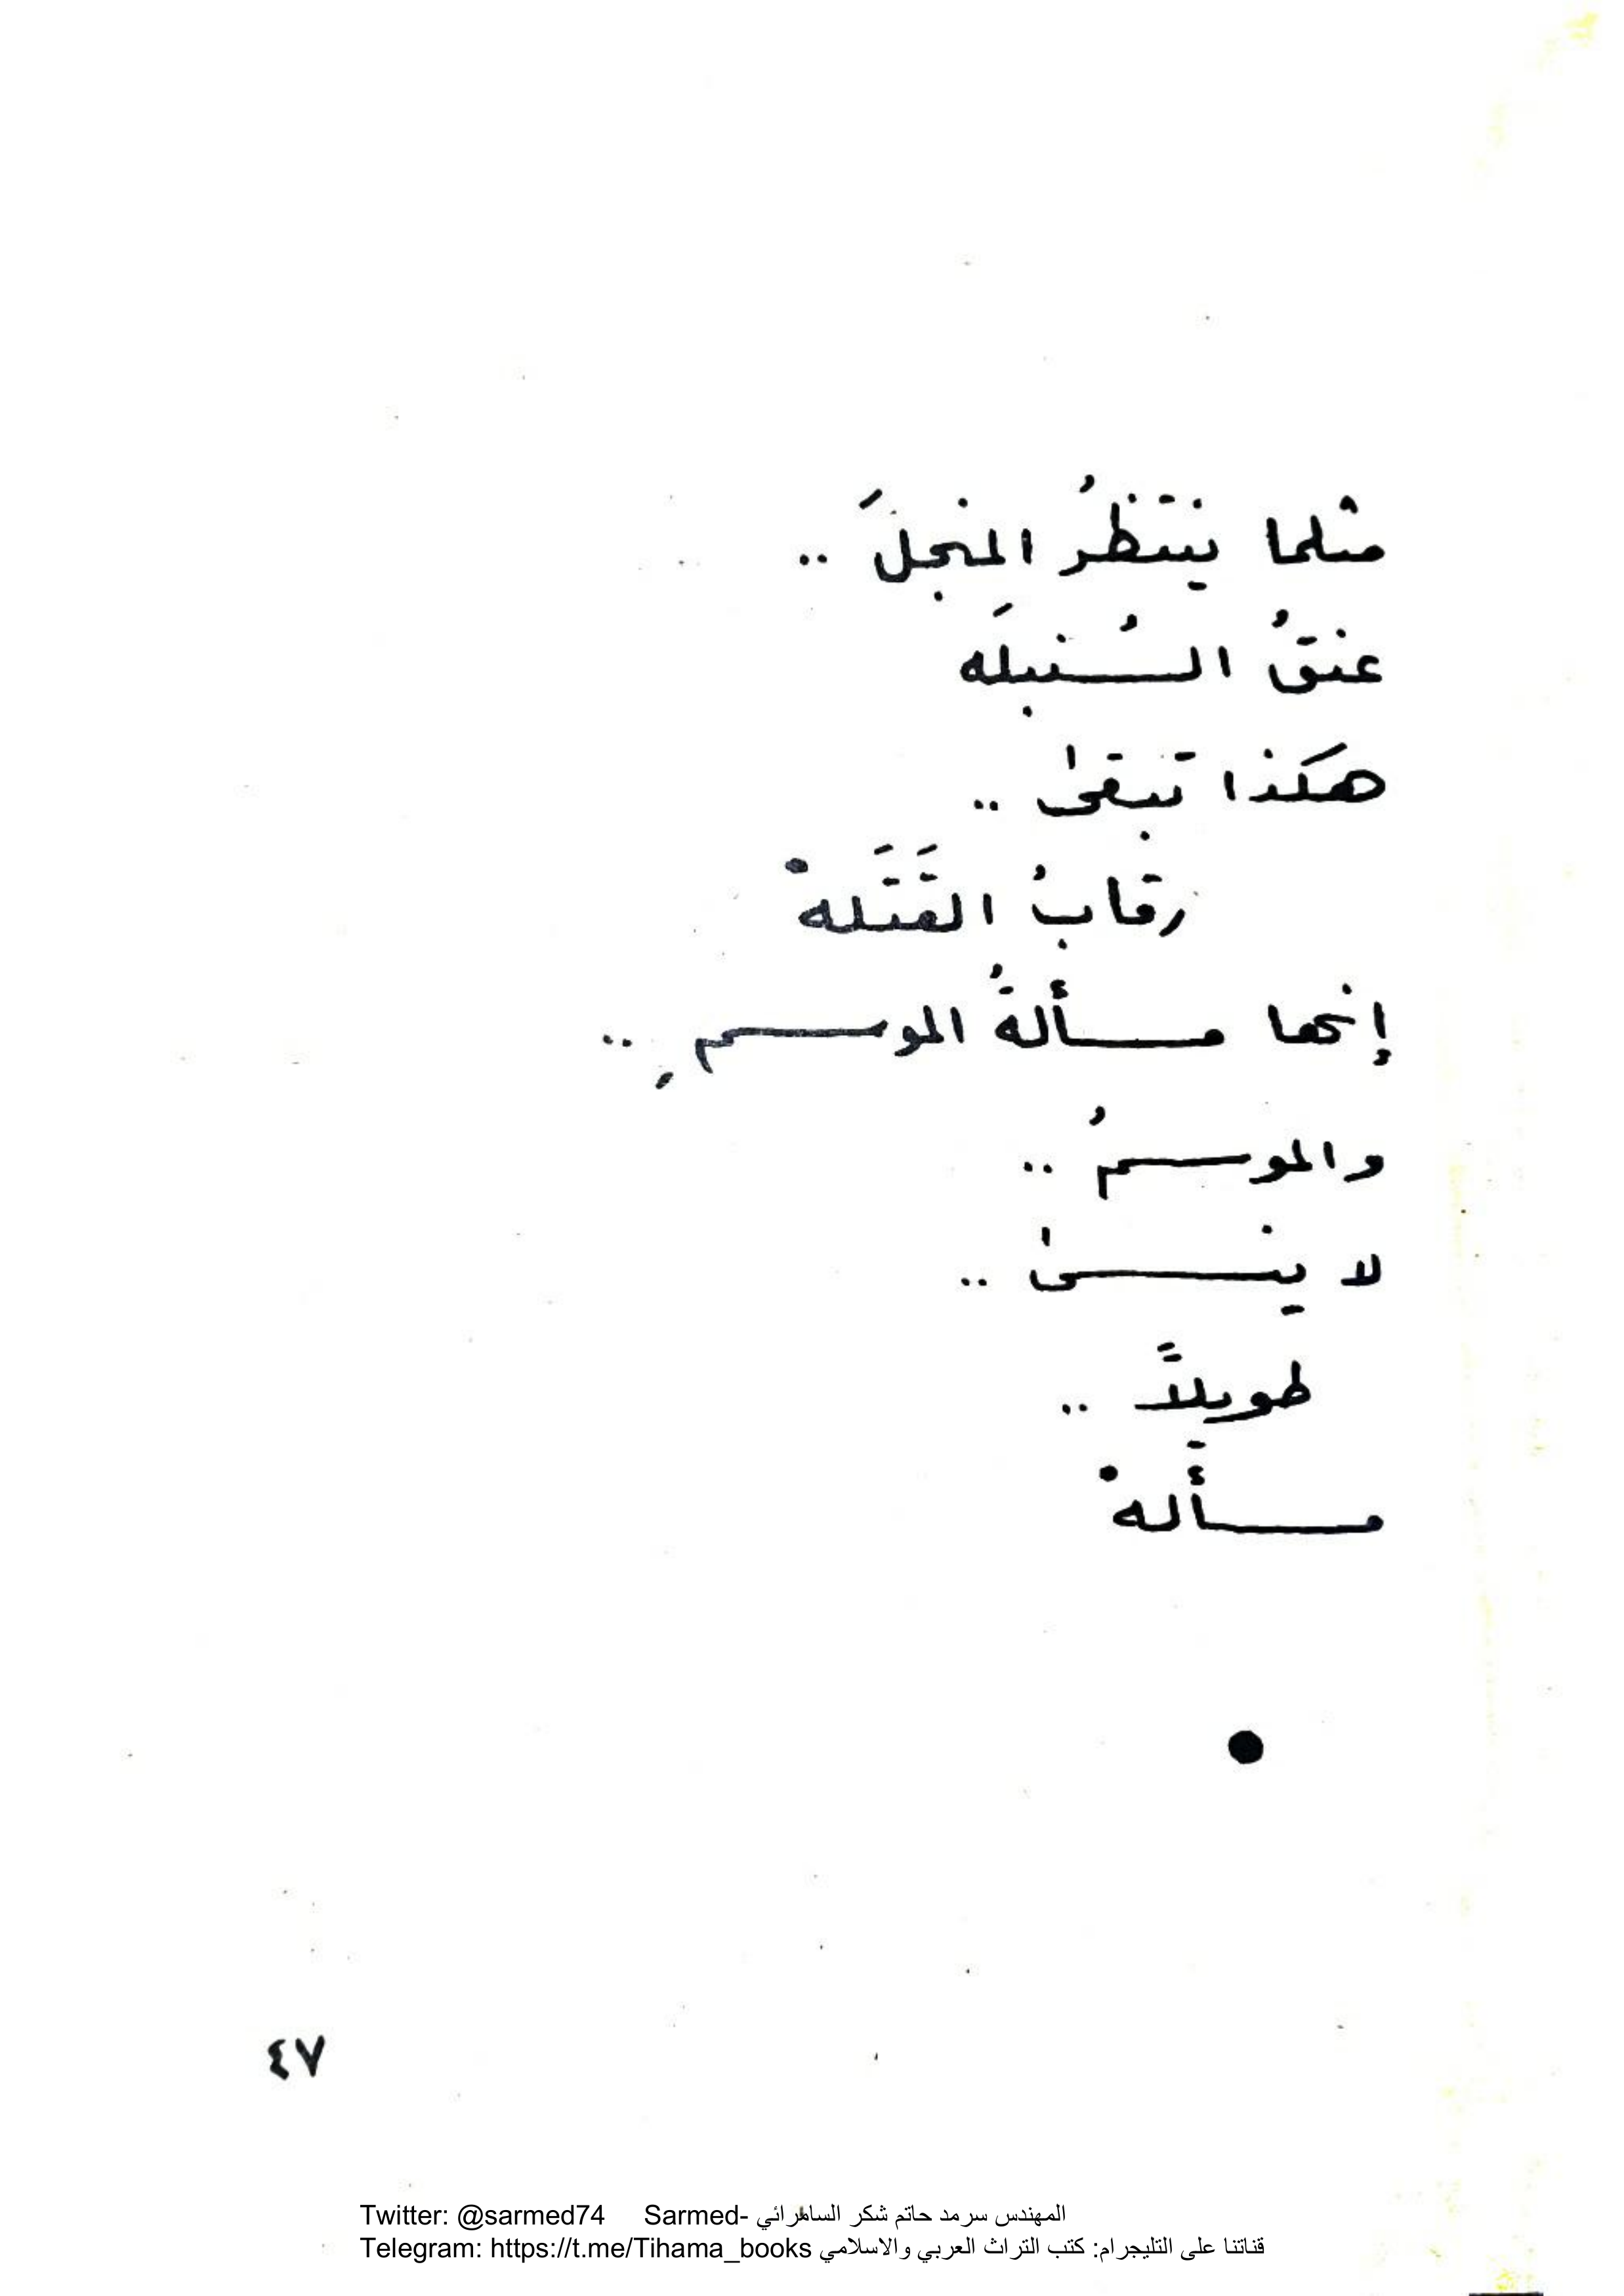 مثلما ينتظرُ المنجلَ ..
عنقُ السُنبلَه
هكذا تبقىٰ ..
رقابُ القَتَلهْ
إنها مسألةُ الموسمِ ..
والموسمُ ..
لا ينسىٰ ..
طويلاً ..
مسألهْ
٤٧
Twitter: @sarmed74 Sarmed- المهندس سرمد حاتم شكر السامرائي
Telegram: https://t.me/Tihama_books قناتنا على التليجرام: كتب التراث العربي والاسلامي